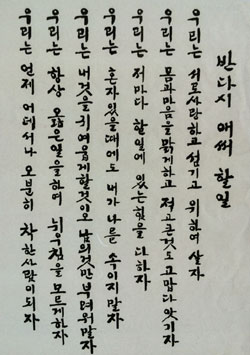 반다시 애써 할일
우리는 서로사랑하고 섬기고 위하여 살자
우리는 몸과마음을 맑게하고 적고큰것도 고맙다 앗기자
우리는 저마다 할일에 있는힘을 다하자
우리는 혼자있을때에도 내가 나를 속이지말자
우리는 내것을 귀여웁게할것이오 남의것만 부려워말자
우리는 항상 옳은일을하여 뉘우침을 모르게하자
우리는 언제 어데서나 오분히 착한사람이되자